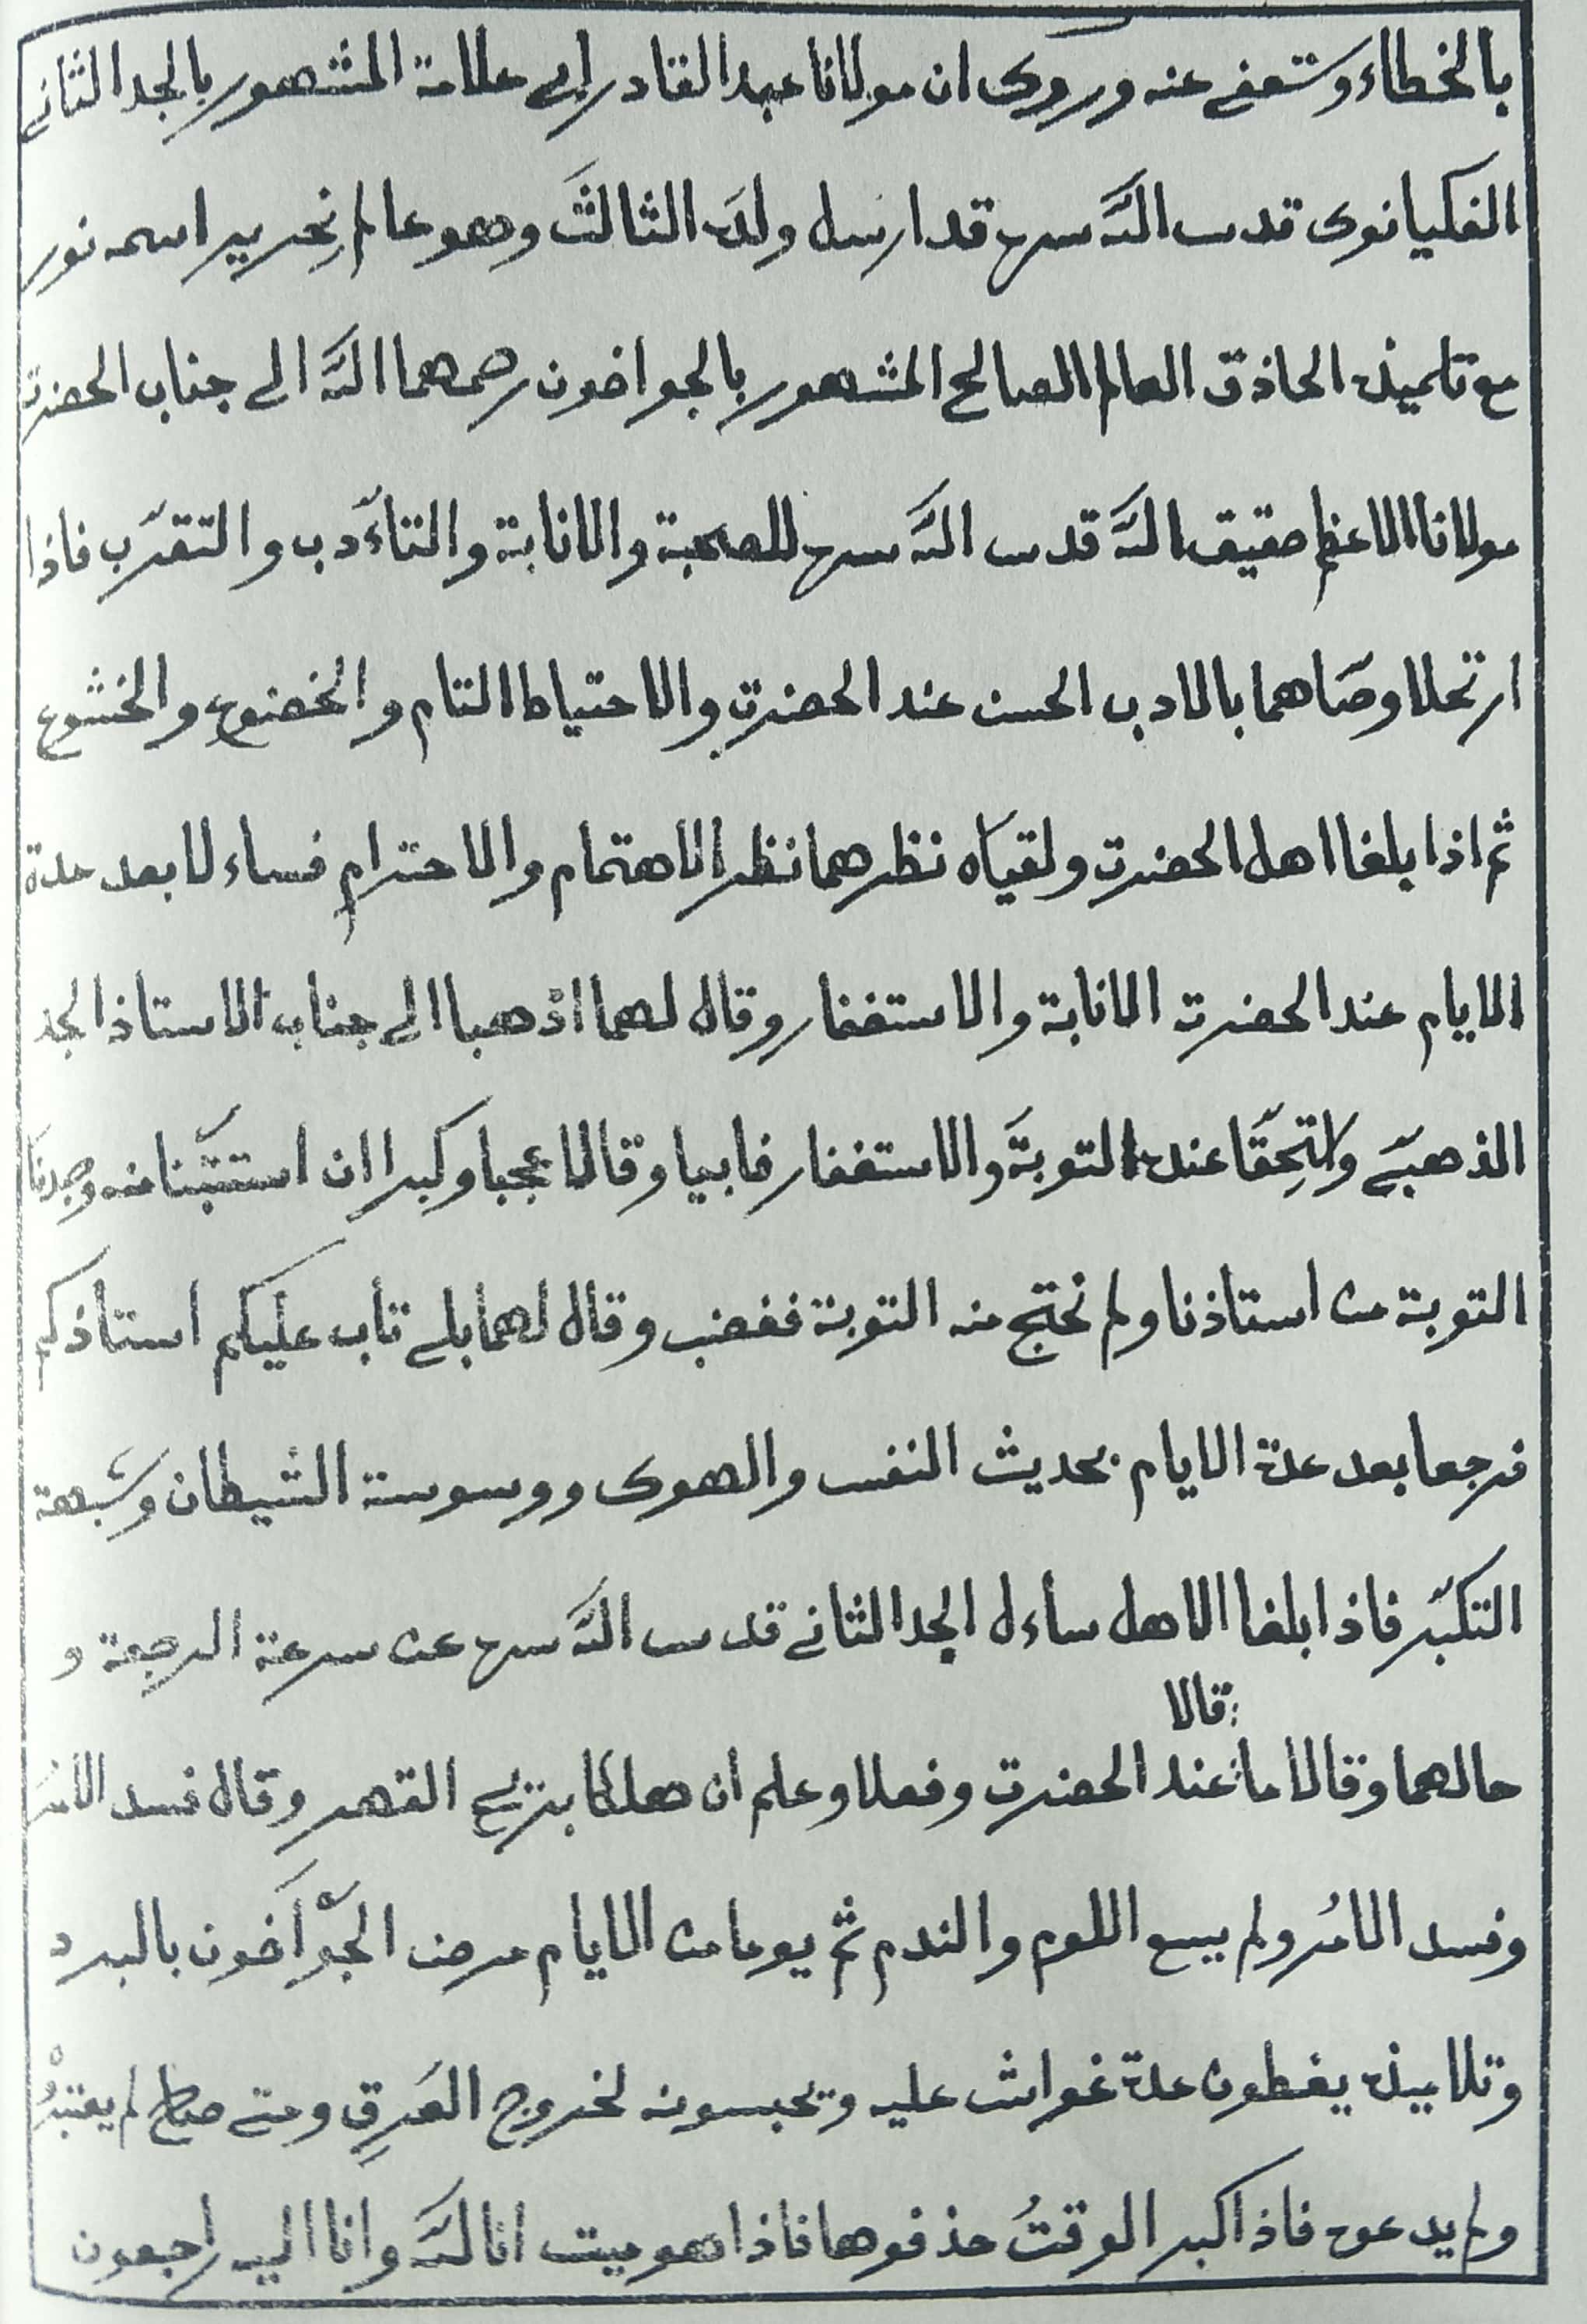 بالخطاء وتعفے عنه وروى ان مولانا عبد القادر ابے علامة المشهور بالجد الثانے
الفكيانوى قدس اللّه سره قد ارسل ولدَه الثالثَ وهو عالم نِحرير اسمه نور
مع تلميذه الحاذق العالم الصالح المشهور بالجواخون رحمهما اللّه الى جناب الحضرت
مولانا الاعظم حقيق اللّه قدس اللّه سره للصحبة والانابة والتأَدب والتقرّب فاذا
ارتحلا وصّاهما بالادب الحسن عند الحضرت والاحتياط التام والخضوع والخشوع
ثم اذا بلغا اهل الحضرت ولقياه نظرهما نظر الاهتمام والاحترام فساءلا بعد عدة
الايام عند الحضرت الانابة والاستغفار وقال لهما اذهبا الى جناب الاستاذ الجد
الذهبےّ والتحِقَا عنده التوبةَ والاستغفار فابيا وقالا عجبا وكبرا ان استتبّنا منه وجدنا
التوبة من استاذنا ولم نحتج منه التوبة فغضب وقال لهما بلے تاب عليكم استاذكم
فرجعا بعد عدة الايام بحديث النفس والهوى ووسوسة الشيطان وشبهة
التكبّر فاذا بلغا الاهل سأءل الجد الثانے قدس اللّه سره عن سرعة الرجعة و
حالهما وقالا ما قالا عند الحضرت وفعلا وعلم ان هلكا بتريح القهر وقال فسد الامرُ
وفسد الامرُ ولم يسع اللوم والندم ثم يوما من الايام مرض الجوّاَخون بالبرد
وتلاميذه يغطون عدة غواش عليه وتحبسونه لخروج العَرقِ ومتے صاح لم يعتبرْوُ
ولم يدعوه فاذا كبر الوقتُ حذفوها فاذا هو ميت انا للّه وانا اليه راجعون